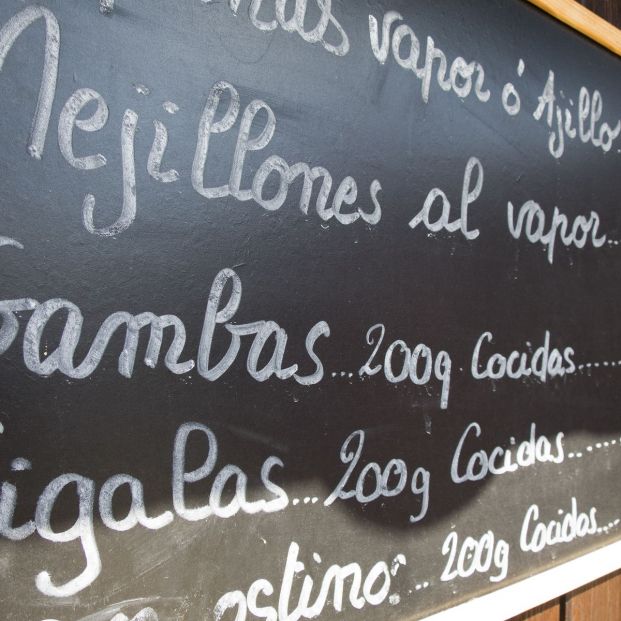 vapor ó Ajillo..
Mejillones al vapor...
Gambas...200g Cocidas......
Cigalas...200g Cocidas......
200g Cocidas....